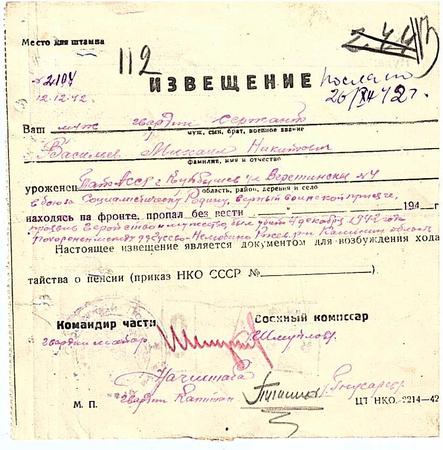 Место для штампа
№ 2104
12.12.42
112
ИЗВЕЩЕНИЕ
Послано
26/XII 42г.
Ваш муж гвардии сержант
муж, сын, брат, военное звание
Васильев Михаил Никитович
фамилия, имя и отчество
уроженец г. Куйбышев ул
область, район, деревня и село
в бою за Социалистическую Родину, верный воинской присяге,
находясь на фронте, пропал без вести 194 г
проявив геройство и мужество, был убит 4 декабря 1942 года
Похоронен
Настоящее извещение является документом для возбуждения хода
тайства о пенсии (приказ НКО СССР № ).
Командир части Военный комиссар
гвардии майор Шмуйлов
Начштаба
гвардии капитан
М. П. ЦТ НКО-2214-42